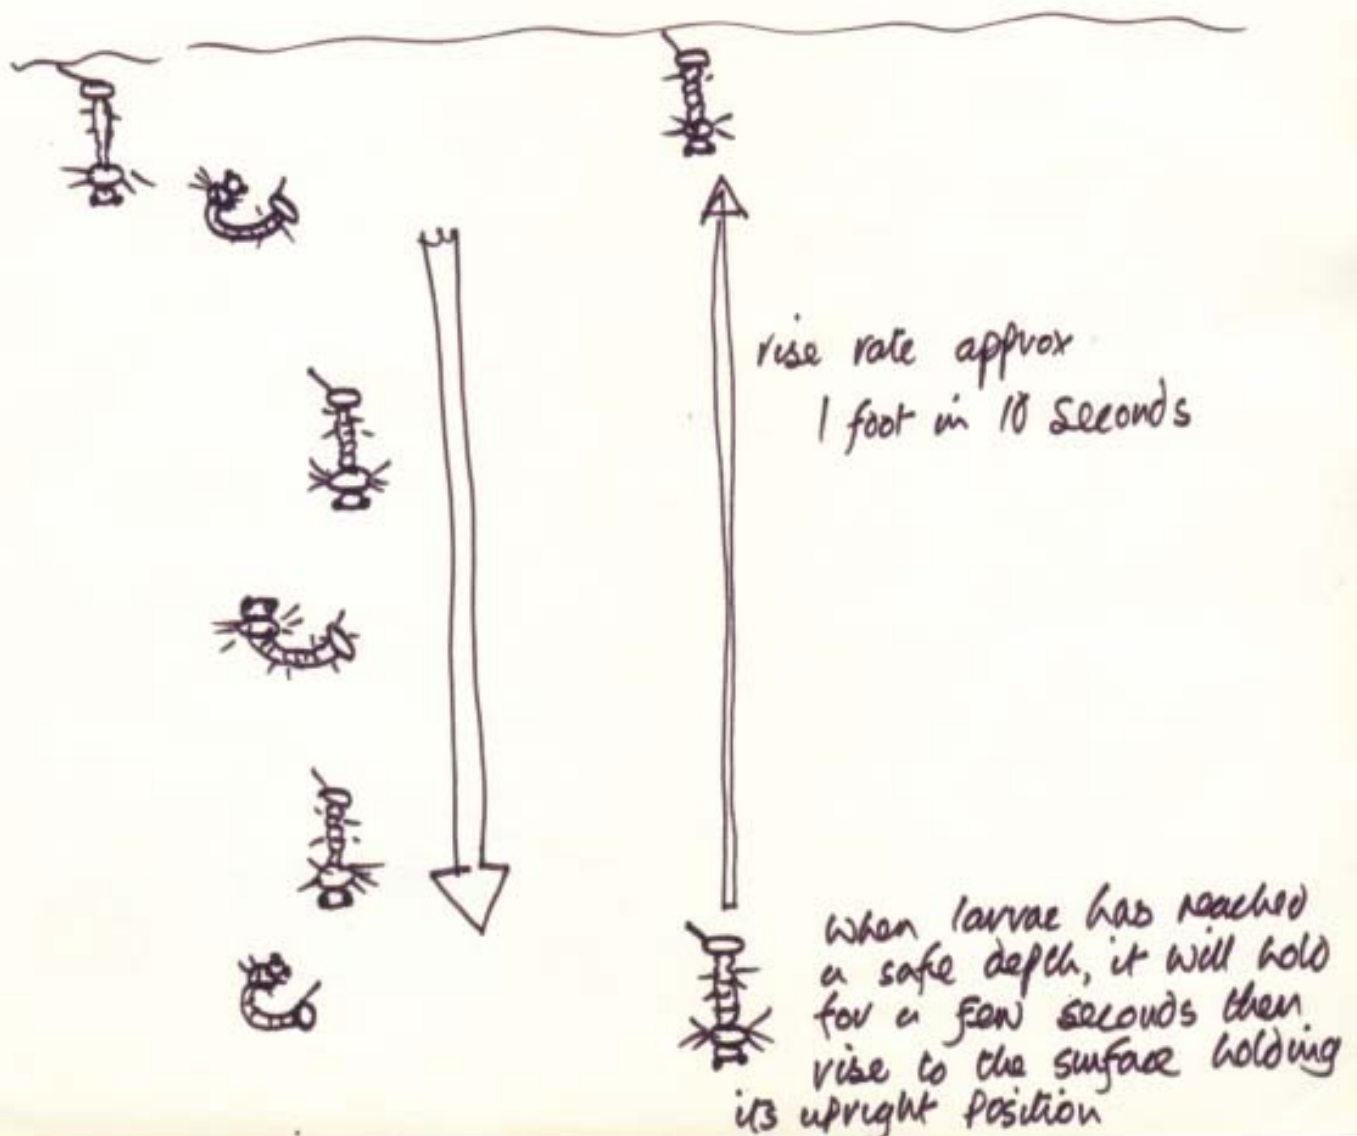 rise rate approx
1 foot in 10 seconds
when larvae has reached
a safe depth, it will hold
for a few seconds then
rise to the surface holding
its upright position